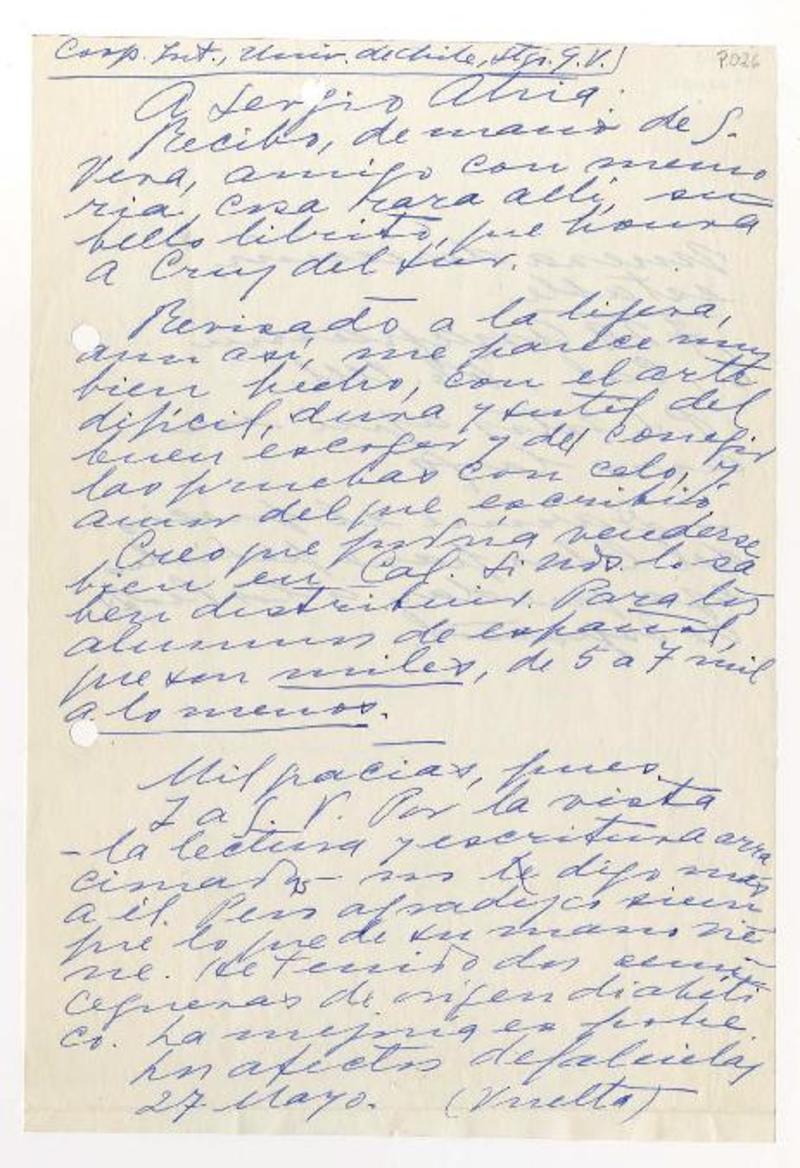 Coop. Int., Univ. de Chile, Stgo. G. V.)
P.026
A Sergio Atria.
Recibo, de mano de S.
Vera, amigo con memo
ria, cosa rara allí, su
bello librito, que honra
a Cruz del Sur.
Revisado a la ligera,
aun así, me parece muy
bien hecho, con el arte
difícil, dura y sutil del
buen escoger y del corregir
las pruebas con celo, y
amor del que escribió.
Creo que podría venderse
bien en Cal. si nos lo sa
ben distribuir. Para los
alumnos de español,
que son miles, de 5 a 7 mil
a lo menos.
Mil gracias, pues.
Y a S. V. Por la vista
- la lectura y escritura arra
cimadas - no le digo más
a él. Pero agradezco siem
pre lo que de su mano vie
ne. He tenido dos semi-
cegueras de origen diabéti
co. La mejoría es pobre.
Los afectos de Gabriela
27 Mayo. (Vuelta)